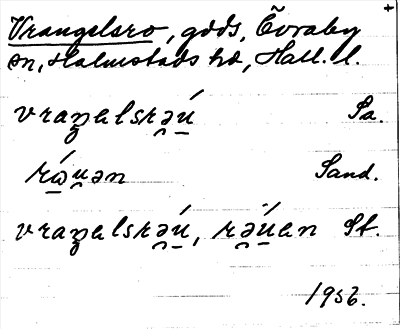 Vrangelsro, gods, Övraby
sn, Halmstads hd, Hall. l.
vraŋalsrə̯ú̲ Sa.
rə́u̯ən Sand.
vraŋalsrə̯ú̲, rə̯ú̲an St.
1956.